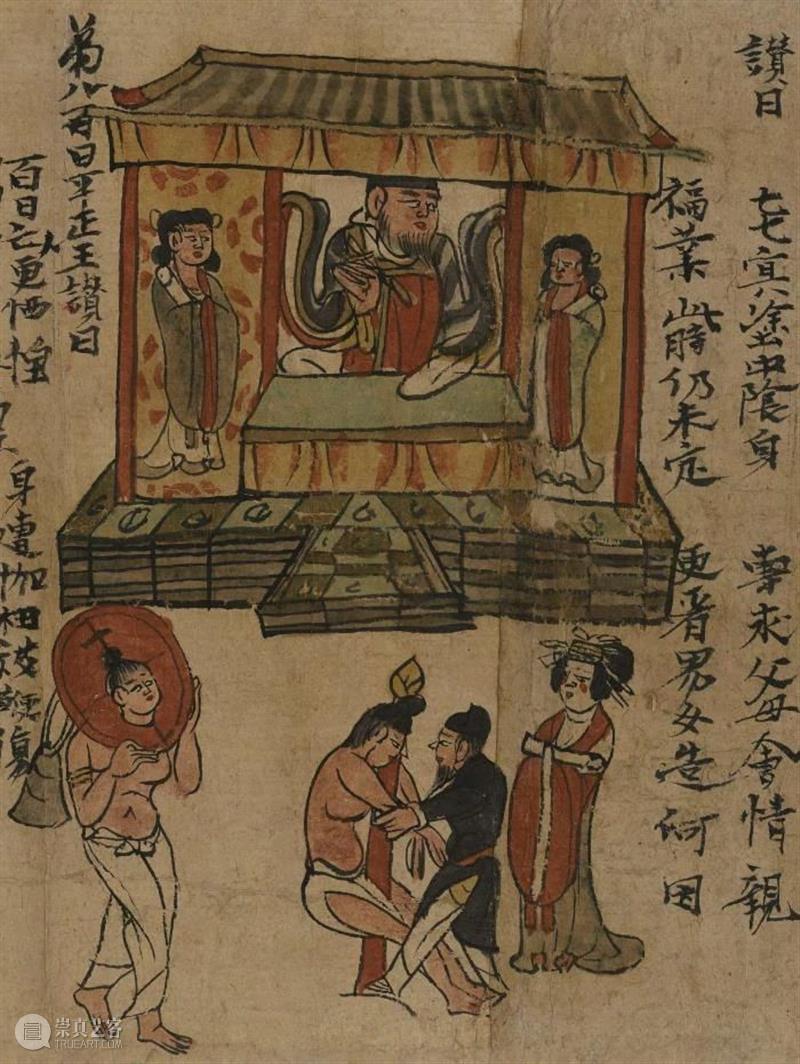 讚曰 七七冥途中陰身 專求父母會情親
福業此時仍未定 更看男女造何因
第八百日平正王讚曰
百日亡人更恓惶 身遭枷杻被鞭傷
崇真艺客
TRUEART.COM